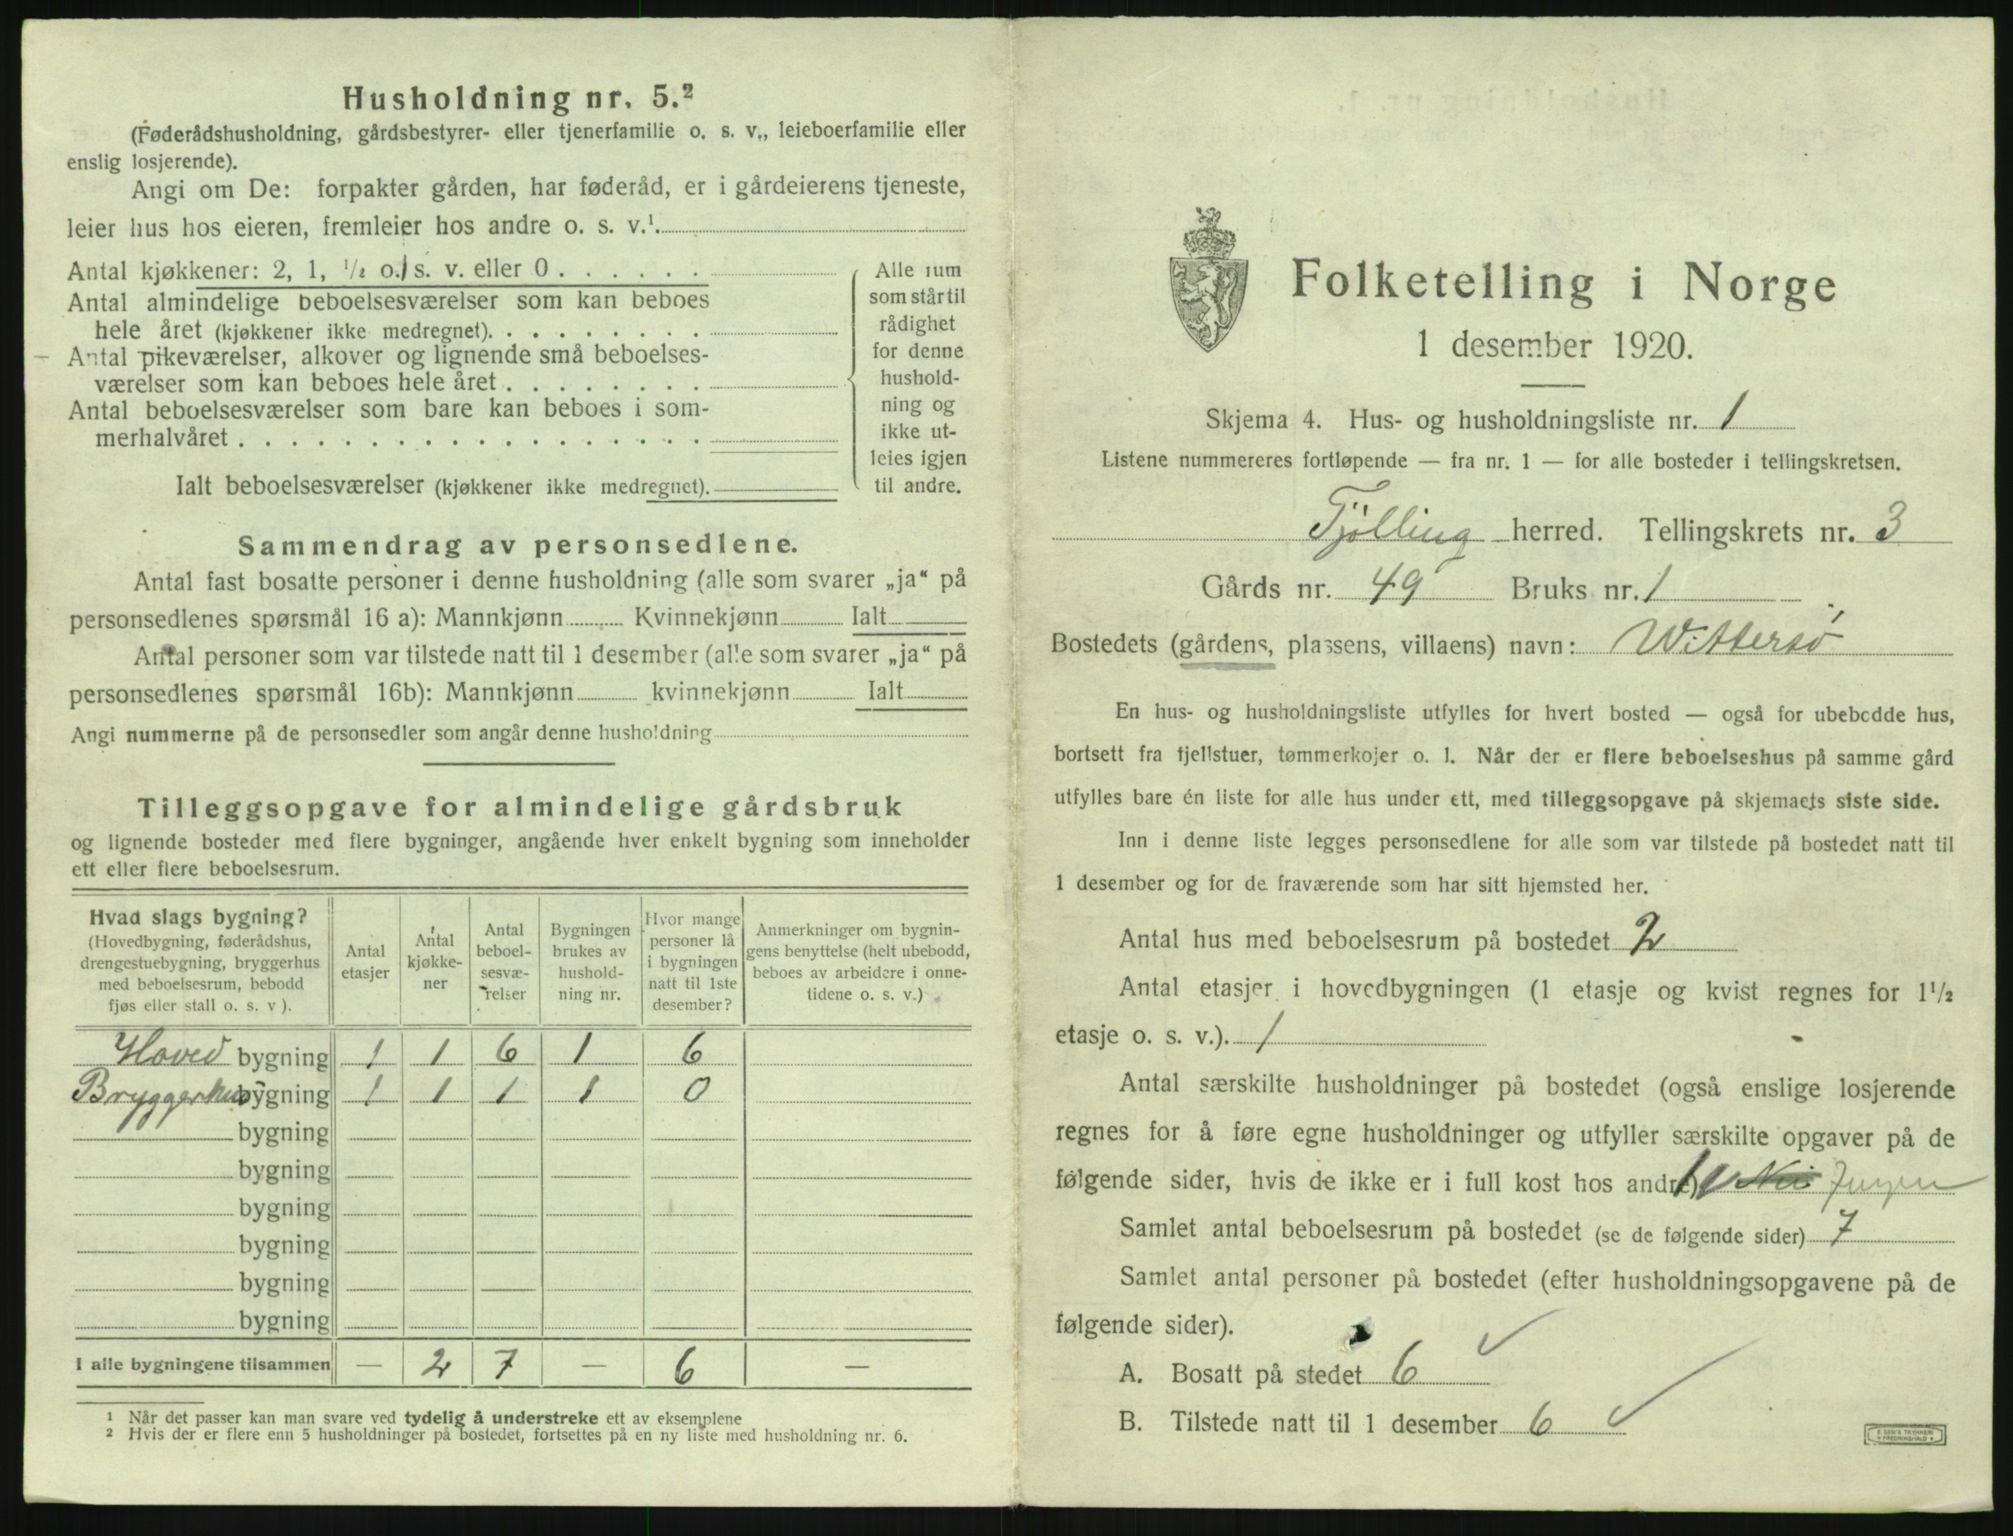 Husholdning nr. 5.²
(Føderådshusholdning, gårdsbestyrer- eller tjenerfamilie o. s. v., leieboerfamilie eller
enslig losjerende).
Angi om De: forpakter gården, har føderåd, er i gårdeierens tjeneste,
leier hus hos eieren, fremleier hos andre o. s. v.¹.
Antal kjøkkener: 2, 1, ½ o. s. v. eller 0 . . . . . .
Antal almindelige beboelsesværelser som kan beboes
hele året (kjøkkener ikke medregnet). . . . . . . . .
Antal pikeværelser, alkover og lignende små beboelses-
værelser som kan beboes hele året . . . . . . . .
Antal beboelsesværelser som bare kan beboes i som-
merhalvåret . . . . . . . . . . . . . . . . . .
Ialt beboelsesværelser (kjøkkener ikke medregnet).
Alle rum
som står til
rådighet
for denne
hushold-
ning og
ikke ut-
leies igjen
til andre.
Sammendrag av personsedlene.
Antal fast bosatte personer i denne husholdning (alle som svarer „ja“ på
personsedlenes spørsmål 16 a): Mannkjønn Kvinnekjønn Ialt
Antal personer som var tilstede natt til 1 desember (alle som svarer „ja“ på
personsedlenes spørsmål 16b): Mannkjønn kvinnekjønn Ialt
Angi nummerne på de personsedler som angår denne husholdning
Tilleggsopgave for almindelige gårdsbruk
og lignende bosteder med flere bygninger, angående hver enkelt bygning som inneholder
ett eller flere beboelsesrum.
Hvad slags bygning?
(Hovedbygning, føderådshus,
drengestuebygning, bryggerhus
med beboelsesrum, bebodd
fjøs eller stall o. s. v ).
Antal
etasjer
Antal
kjøkke-
ner
Antal
beboel-
sesvæ-
relser
Bygningen
brukes av
hushold-
ning nr.
Hvor mange
personer lå
i bygningen
natt til 1ste
desember?
Anmerkninger om bygnin-
gens benyttelse (helt ubebodd,
beboes av arbeidere i onne-
tidene o. s. v.)
Hoved bygning 1 1 6 1 6
Bryggerhus bygning 1 1 1 1 0
bygning
bygning
bygning
bygning
bygning
bygning
I alle bygningene tilsammen — 2 7 — 6 —
¹ Når det passer kan man svare ved tydelig å understreke ett av eksemplene
² Hvis der er flere enn 5 husholdninger på bostedet, fortsettes på en ny liste med husholdning nr. 6.
Folketelling i Norge
1 desember 1920.
Skjema 4. Hus- og husholdningsliste nr. 1
Listene nummereres fortløpende — fra nr. 1 — for alle bosteder i tellingskretsen.
Tjølling herred. Tellingskrets nr. 3
Gårds nr. 49 Bruks nr. 1
Bostedets (gårdens, plassens, villaens) navn: Wittersø
En hus- og husholdningsliste utfylles for hvert bosted — også for ubebodde hus,
bortsett fra fjellstuer, tømmerkojer o. l. Når der er flere beboelseshus på samme gård
utfylles bare én liste for alle hus under ett, med tilleggsopgave på skjemaets siste side.
Inn i denne liste legges personsedlene for alle som var tilstede på bostedet natt til
1 desember og for de fraværende som har sitt hjemsted her.
Antal hus med beboelsesrum på bostedet 2
Antal etasjer i hovedbygningen (1 etasje og kvist regnes for 1½
etasje o. s. v.). 1
Antal særskilte husholdninger på bostedet (også enslige losjerende
regnes for å føre egne husholdninger og utfyller særskilte opgaver på de
følgende sider, hvis de ikke er i full kost hos andre) 1 Ingen
Samlet antal beboelsesrum på bostedet (se de følgende sider) 7
Samlet antal personer på bostedet (efter husholdningsopgavene på de
følgende sider).
A. Bosatt på stedet 6
B. Tilstede natt til 1 desember 6